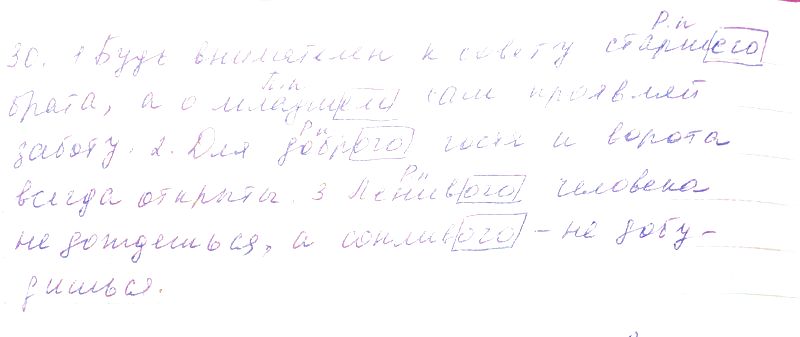 Р.п
30. 1 Будь внимателен к совету старшего
П.п
брата, а о младшем сам проявляй
Р п
заботу. 2. Для доброго гостя и ворота
Р. п
всегда открыты. 3 Ленивого человека
не дождешься, а сонливого – не добу-
дишься.